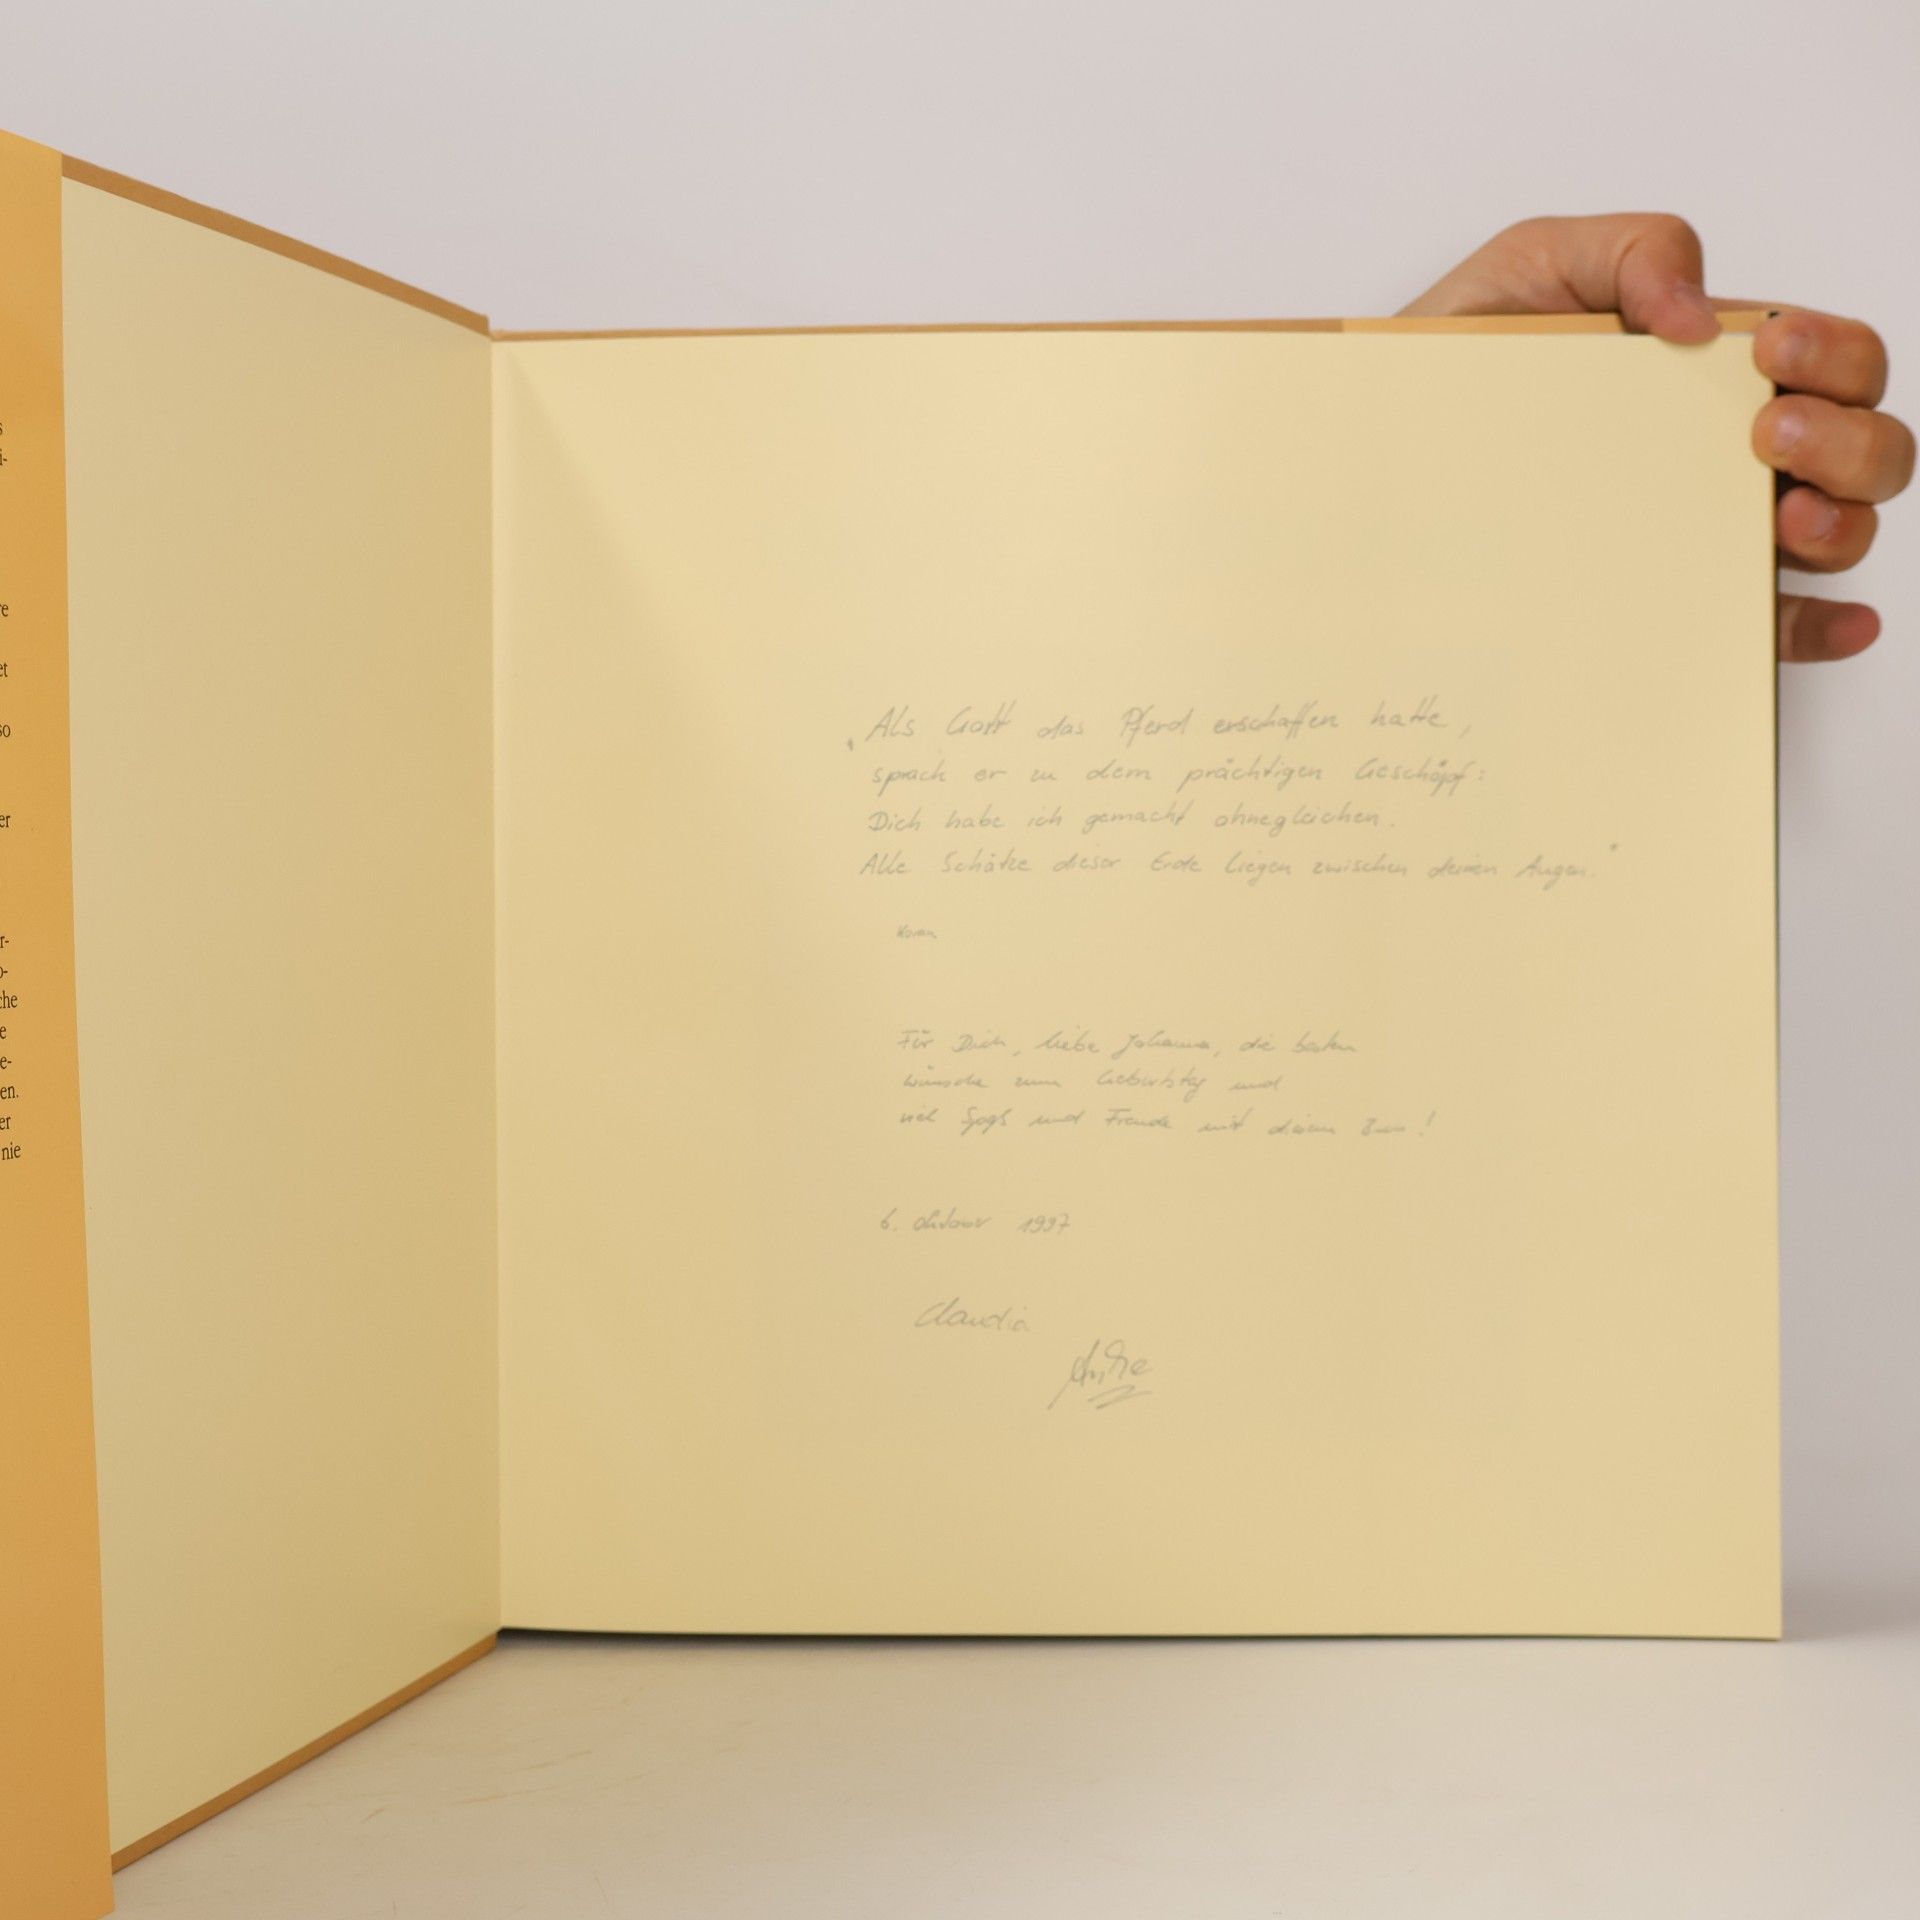 s
i-
re
et
so
er
r-
o-
che
e
e-
en.
er
nie
„Als Gott das Pferd erschaffen hatte,
sprach er zu dem prächtigen Geschöpf:
Dich habe ich gemacht ohnegleichen.
Alle Schätze dieser Erde liegen zwischen deinen Augen."
Koran
Für Dich, liebe Johanna, die besten
Wünsche zum Geburtstag und
viel Spaß und Freude mit diesem
6. Oktober 1997
Claudia
Andre